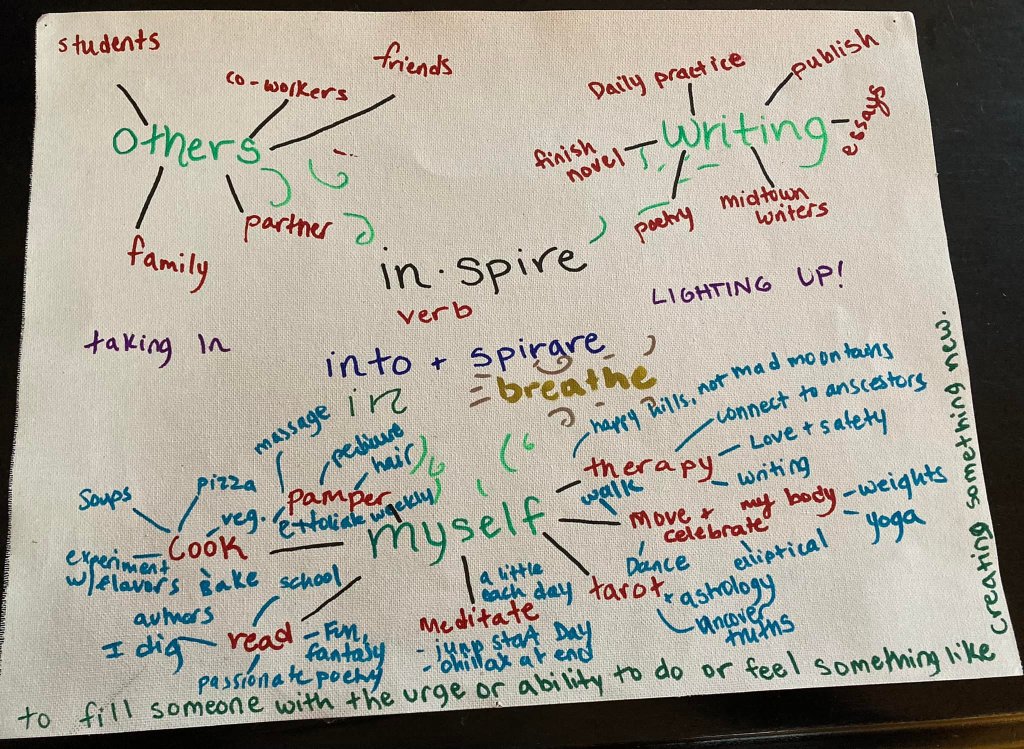 students
co-workers
friends
others
family
partner
Daily practice
publish
writing
essays
finish
novel
poetry
midtown
writers
in·spire
verb
LIGHTING UP!
taking In
into + spirare
in
breathe
myself
massage
pedicure
hair
pamper
exfoliate weekly
Soups
pizza
veg.
Cook
experiment
w/flavors
Bake
school
authors
I dig
read
- Fun,
fantasy
passionate poetry
a little
each day
Meditate
- jump start Day
- chillax at end
happy hills, not mad moontains
connect to anscestors
Love + safety
therapy
writing
walk
move + my body
celebrate
weights
yoga
Dance
elliptical
tarot + astrology
uncover
truths
to fill someone with the urge or ability to do or feel something like
creating something new.